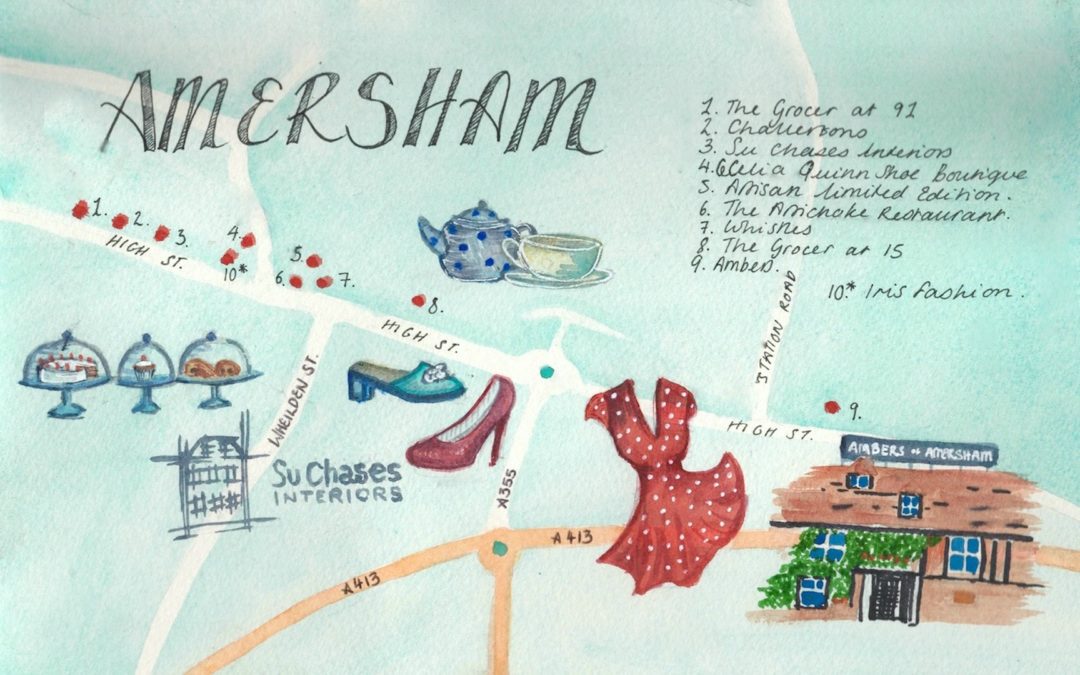 AMERSHAM
1. The Grocer at 91
2. Challersons
3. Su Chases Interiors
4. Celia Quinn Shoe Boutique
5. Artisan Limited Edition.
6. The Artichoke Restaurant.
7. Whistles
8. The Grocer at 15
9. Ambers.
10.* Iris fashion.
1.
2.
3.
4.
10*
5.
6.
7.
8.
HIGH ST.
HIGH ST.
STATION ROAD
9.
HIGH ST.
WHEILDEN ST.
Su Chases
INTERIORS
A355
A413
A413
AMBERS of AMERSHAM